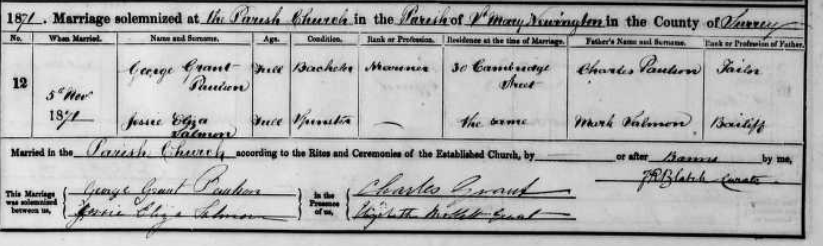 1871. Marriage solemnized at the Parish Church in the Parish of St Mary Newington in the County of Surrey
No. When Married. Name and Surname. Age. Condition. Rank or Profession. Residence at the time of Marriage. Father's Name and Surname. Rank or Profession of Father.
George Grant Full Bachelor 30 Cambridge Charles Paulson Tailor
Paulson Street
12 5th Nov
1871 Jessie Eliza Full Spinster — the same Mark Salmon Bailiff
Salmon
Married in the Parish Church according to the Rites and Ceremonies of the Established Church, by — or after Banns by me,
Curate
This Marriage was solemnized between us, George Grant Paulson In the Presence of us, Charles Grant
Jessie Eliza Salmon Elizabeth Grant